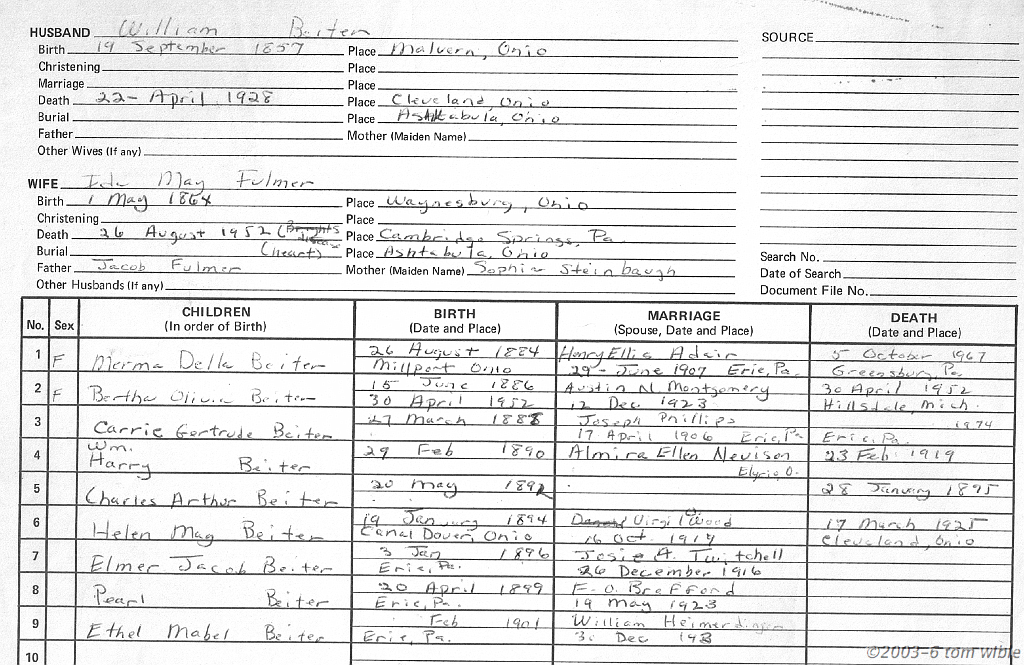 HUSBAND William Beiter
SOURCE
Birth 19 September 1857 Place Malvern, Ohio
Christening Place
Marriage Place
Death 22- April 1928 Place Cleveland, Ohio
Burial Place Ashtabula, Ohio
Father Mother (Maiden Name)
Other Wives (If any)
WIFE Ida May Fulmer
Birth 1 May 1864 Place Waynesburg, Ohio
Christening Place
Death 26 August 1952 (Brights disease Place Cambridge Springs, Pa.
Burial (heart) Place Ashtabula, Ohio
Father Jacob Fulmer Mother (Maiden Name) Sophia Steinbaugh
Other Husbands (If any)
Search No.
Date of Search
Document File No.
No. Sex CHILDREN (In order of Birth) BIRTH (Date and Place) MARRIAGE (Spouse, Date and Place) DEATH (Date and Place)
1 F Merma Della Beiter 26 August 1884 Henry Ellis Adair 5 October 1967
Millport Ohio 29- June 1907 Erie, Pa. Greensburg, Pa.
2 F Bertha Olivia Beiter 15 June 1886 Austin N. Montgomery 30 April 1952
30 April 1952 12 Dec 1923 Hillsdale, Mich.
3 Carrie Gertrude Beiter 27 March 1888 Joseph Phillips 1974
17 April 1906 Erie, Pa Erie, Pa.
4 Wm. Harry Beiter 29 Feb 1890 Almira Ellen Nevison 23 Feb 1919
Elyria O.
5 Charles Arthur Beiter 20 May 1892 28 January 1895
6 Helen May Beiter 19 January 1894 Virgil Wood 17 March 1925
Canal Dover, Ohio 16 Oct 1917 Cleveland, Ohio
7 Elmer Jacob Beiter 3 Jan 1896 Josie A. Twitchell
Erie, Pa. 26 December 1916
8 Pearl Beiter 20 April 1899 F. O. Brefford
Erie, Pa. 19 May 1923
9 Ethel Mabel Beiter Feb 1901 William Heimerdinger
Erie, Pa. 30 Dec
10
©2003-6 tom wible